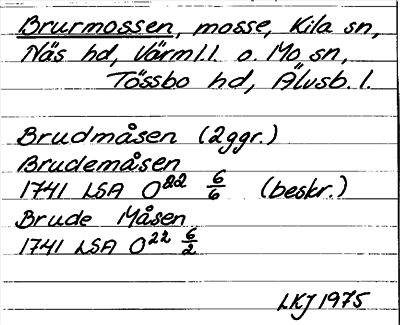 Brurmossen, mosse, Kila sn,
Näs hd, Värml.l. o. Mo sn,
Tössbo hd, Älvsb. l.
Brudmåsen (2ggr.)
Brudemåsen
1741 LSA O22 6/6 (beskr.)
Brude Måsen
1741 LSA O22 6/2
LKJ 1975